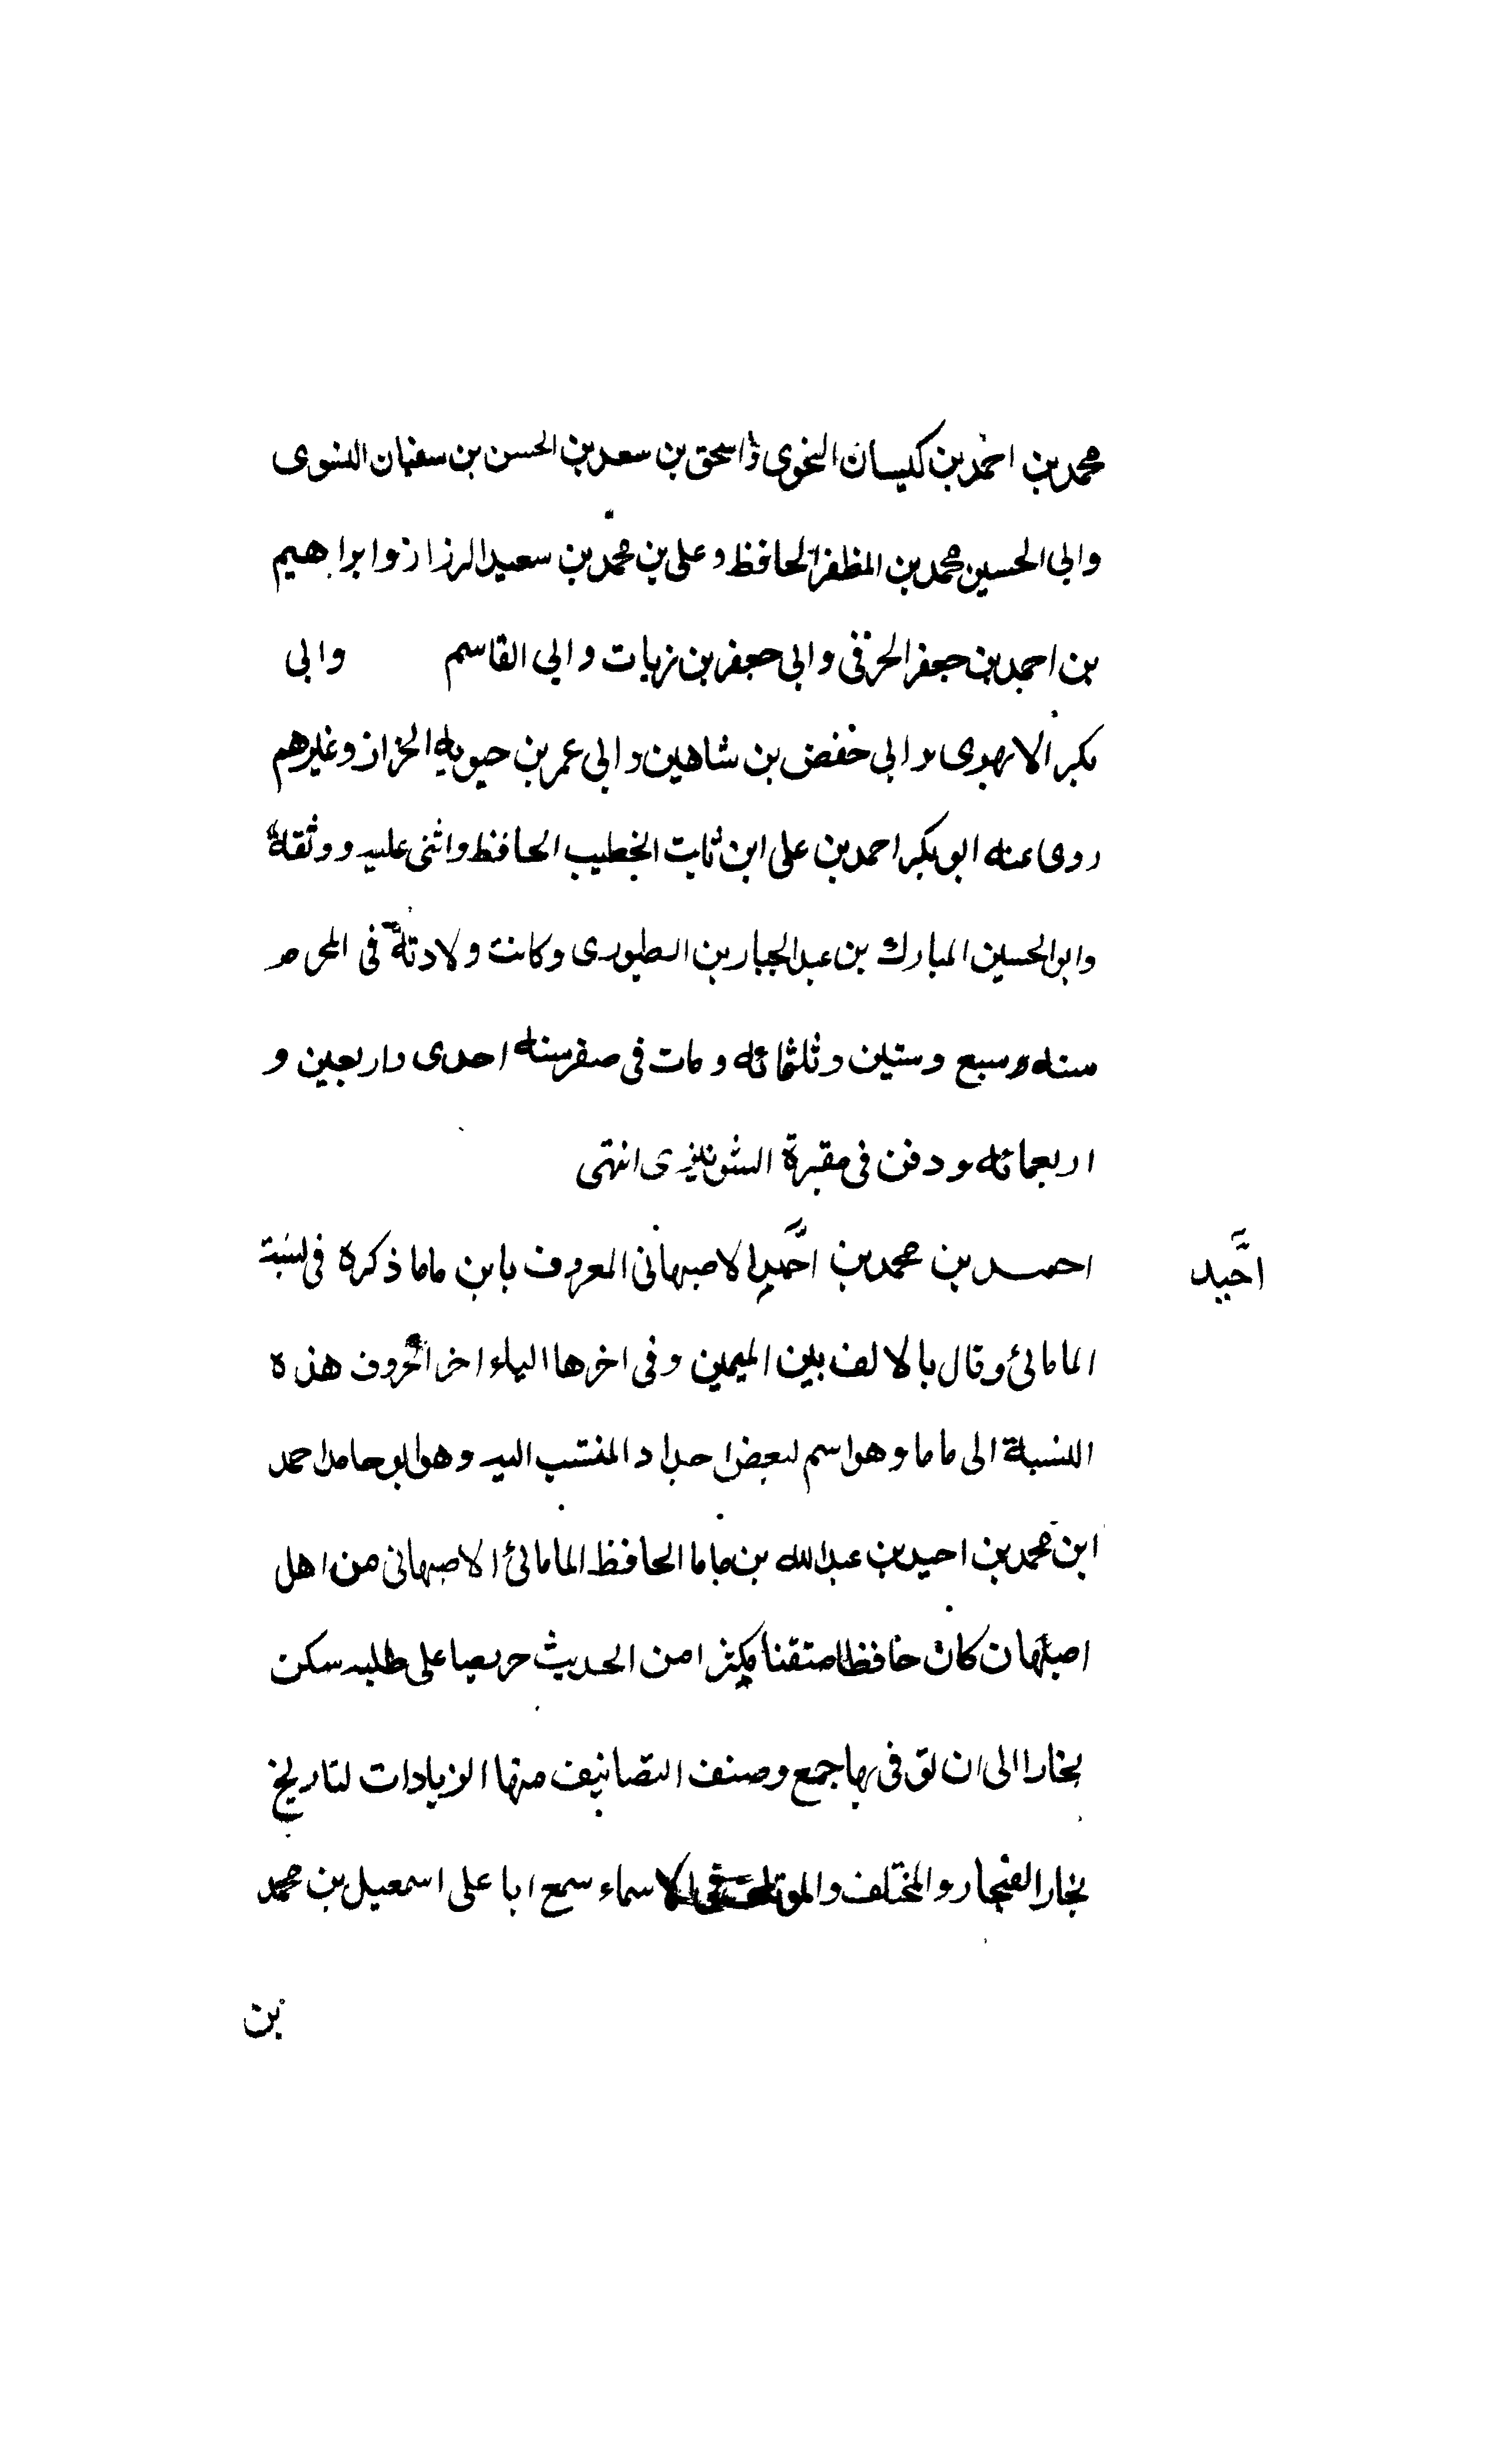 محمد بن احمد بن كيسان النحوى واسحق بن سعد بن الحسن بن سفيان النسوى
وابى الحسين محمد بن المظفر الحافظ وعلى بن محمد بن سعيد الرزاز وابراهيم
بن احمد بن جعفر الخرقى وابى جعفر بن زيات وابى القاسم وابى
بكر الابهرى وابى حفض بن شاهين وابى عمر بن حيويه الخزاز وغيرهم
روى عنه ابو بكر احمد بن على ابن ثابت الخطيب الحافظ واثنى عليه ووثقه
وابو الحسين المبارك بن عبد الجبار بن الطيورى وكانت ولادته فى المحرم
سنه وسبع وستين وثلثمائه ومات فى صفر سنه احدى واربعين و
اربعمائه ودفن فى مقبرة الشونيزى انتهى
احمد بن محمد بن احَّيد الاصبهانى المعروف بابن ماما ذكره فى نسبة
احَّيد
المامائى وقال بالالف بين الميمين وفى اخرها الياء اخر الحروف هذه
النسبة الى ماما وهو اسم لبعض اجداد المنتسب اليه وهو ابو حامد احمد
ابن محمد بن احيد بن عبد الله بن ماما الحافظ المامائى الاصبهانى من اهل
اصبهان كان حافظا متقنا مكثرا من الحديث حريصا على طلبه سكن
بخارا الى ان توفى بها جمع وصنف التصانيف منها الزيادات لتاريخ
بخارا لغنجار والمختلف والموتلف فى الاسماء سمع ابا على اسمعيل بن محمد
بن